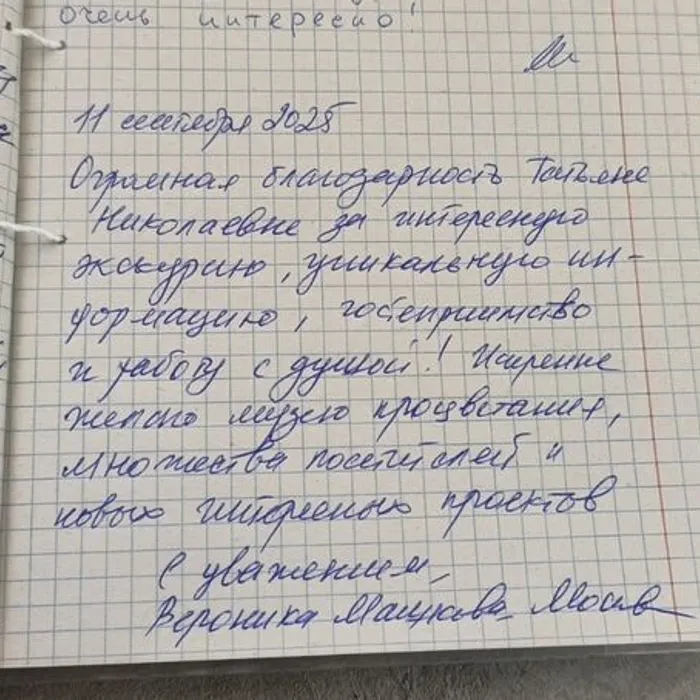 очень интересно!
11 сентября 2025
Огромная благодарность Татьяне
Николаевне за интересную
экскурсию, уникальную ин-
формацию, гостеприимство
и работу с душой! Искренне
желаю музею процветания,
множества посетителей и
новых интересных проектов
С уважением,
Вероника Москва